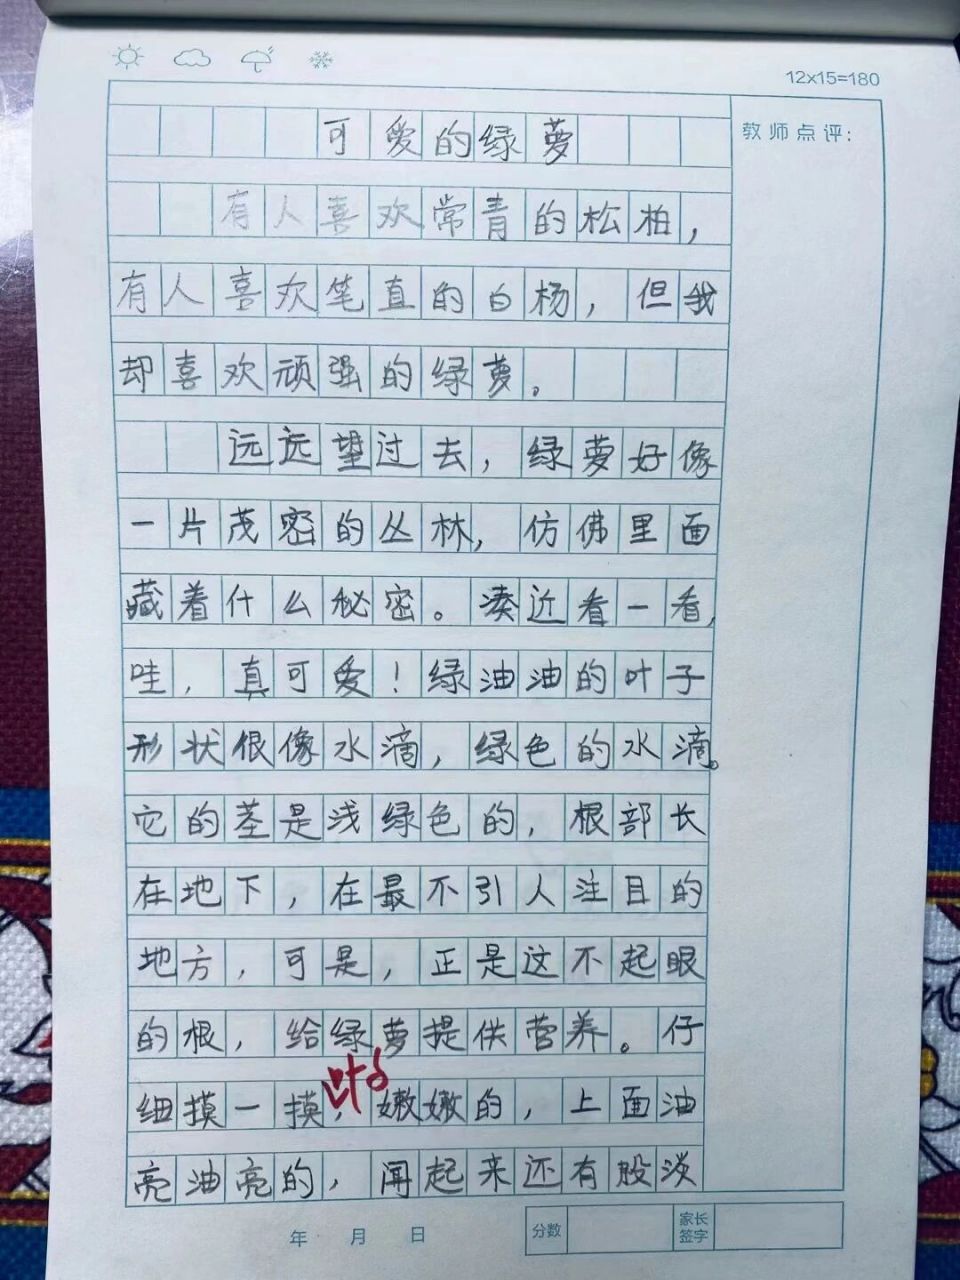 12x15=180
教师点评：
可爱的绿萝
有人喜欢常青的松柏，
有人喜欢笔直的白杨，但我
却喜欢顽强的绿萝。
远远望过去，绿萝好像
一片茂密的丛林，仿佛里面
藏着什么秘密。凑近看一看，
哇，真可爱！绿油油的叶子
形状很像水滴，绿色的水滴。
它的茎是浅绿色的，根部长
在地下，在最不引人注目的
地方，可是，正是这不起眼
的根，给绿萝提供营养。仔
叶子
细摸一摸，嫩嫩的，上面油
亮油亮的，闻起来还有股淡
年 月 日
分数
家长签字